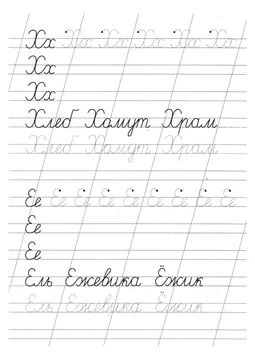 Хх Хх Хх Хх Хх Хх
Хх
Хх
Хлеб Хомут Храм
Хлеб Хомут Храм
Ее Ее Ее Ее Ее Ее Ее Ее
Ее
Ее
Ель Ежевика Ёжик
Ель Ежевика Ёжик